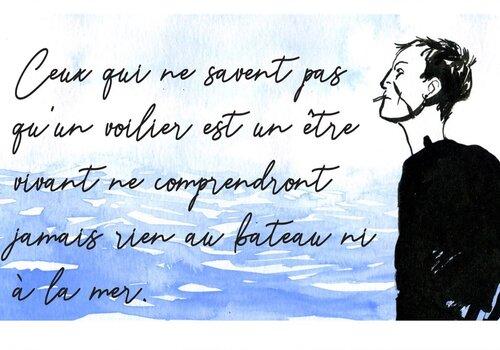 Ceux qui ne savent pas
qu'un voilier est un être
vivant ne comprendront
jamais rien au bateau ni
à la mer.